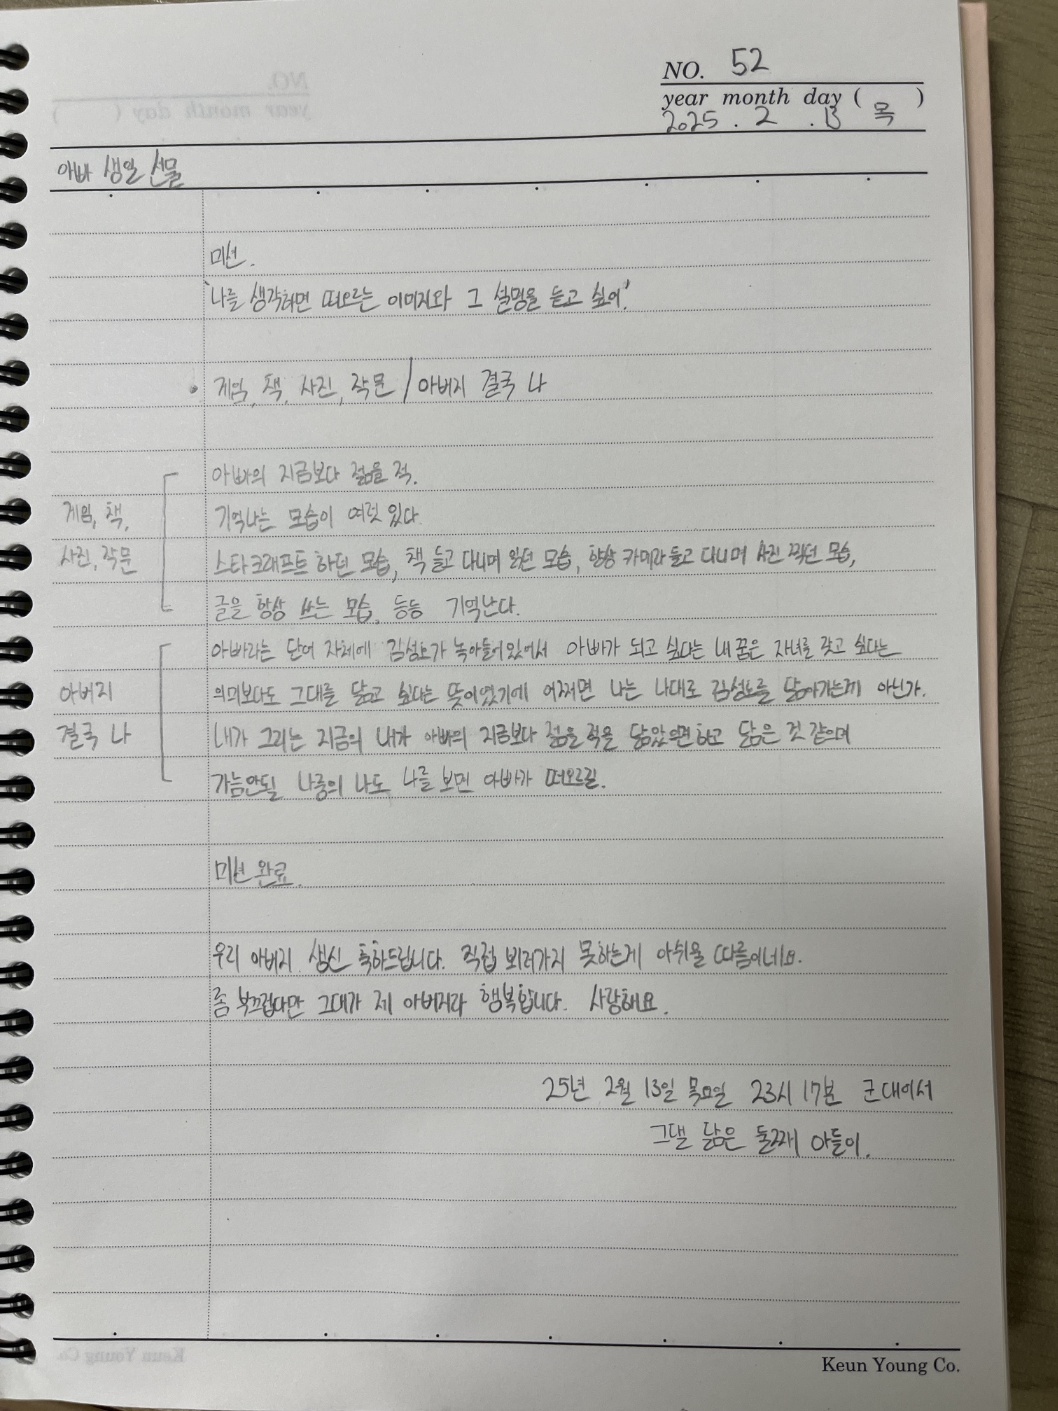 NO. 52
year month day ( 목 )
2025 . 2 . 13
아빠 생일 선물
미션.
'나를 생각하면 떠오르는 이미지와 그 설명을 듣고 싶어!'
• 게임, 책, 사진, 작문 / 아버지 결국 나
아빠의 지금보다 젊을 적.
게임, 책, 기억나는 모습이 여럿 있다
사진, 작문 스타크래프트 하던 모습, 책 들고 다니며 읽던 모습, 항상 카메라 들고 다니며 사진 찍던 모습,
글을 항상 쓰는 모습, 등등 기억난다.
아빠라는 단어 자체에 녹아들어있어서 아빠가 되고 싶다는 내 꿈은 자녀를 갖고 싶다는
아버지 의미보다도 그대를 닮고 싶다는 뜻이었기에 어쩌면 나는 나대로 닮아가는게 아닌가.
결국 나 내가 그리는 지금의 내가 아빠의 지금보다 젊을 적을 닮았으면하고 닮은 것 같으며
가늠안될 나중의 나도 나를 보면 아빠가 떠오르길.
미션 완료.
우리 아버지 생신 축하드립니다. 직접 뵈러가지 못하는게 아쉬울 따름이네요.
좀 부끄럽다만 그대가 제 아버지라 행복합니다. 사랑해요.
25년 2월 13일 목요일 23시 17분 군대에서
그댈 닮은 둘째 아들이.
Keun Young Co.